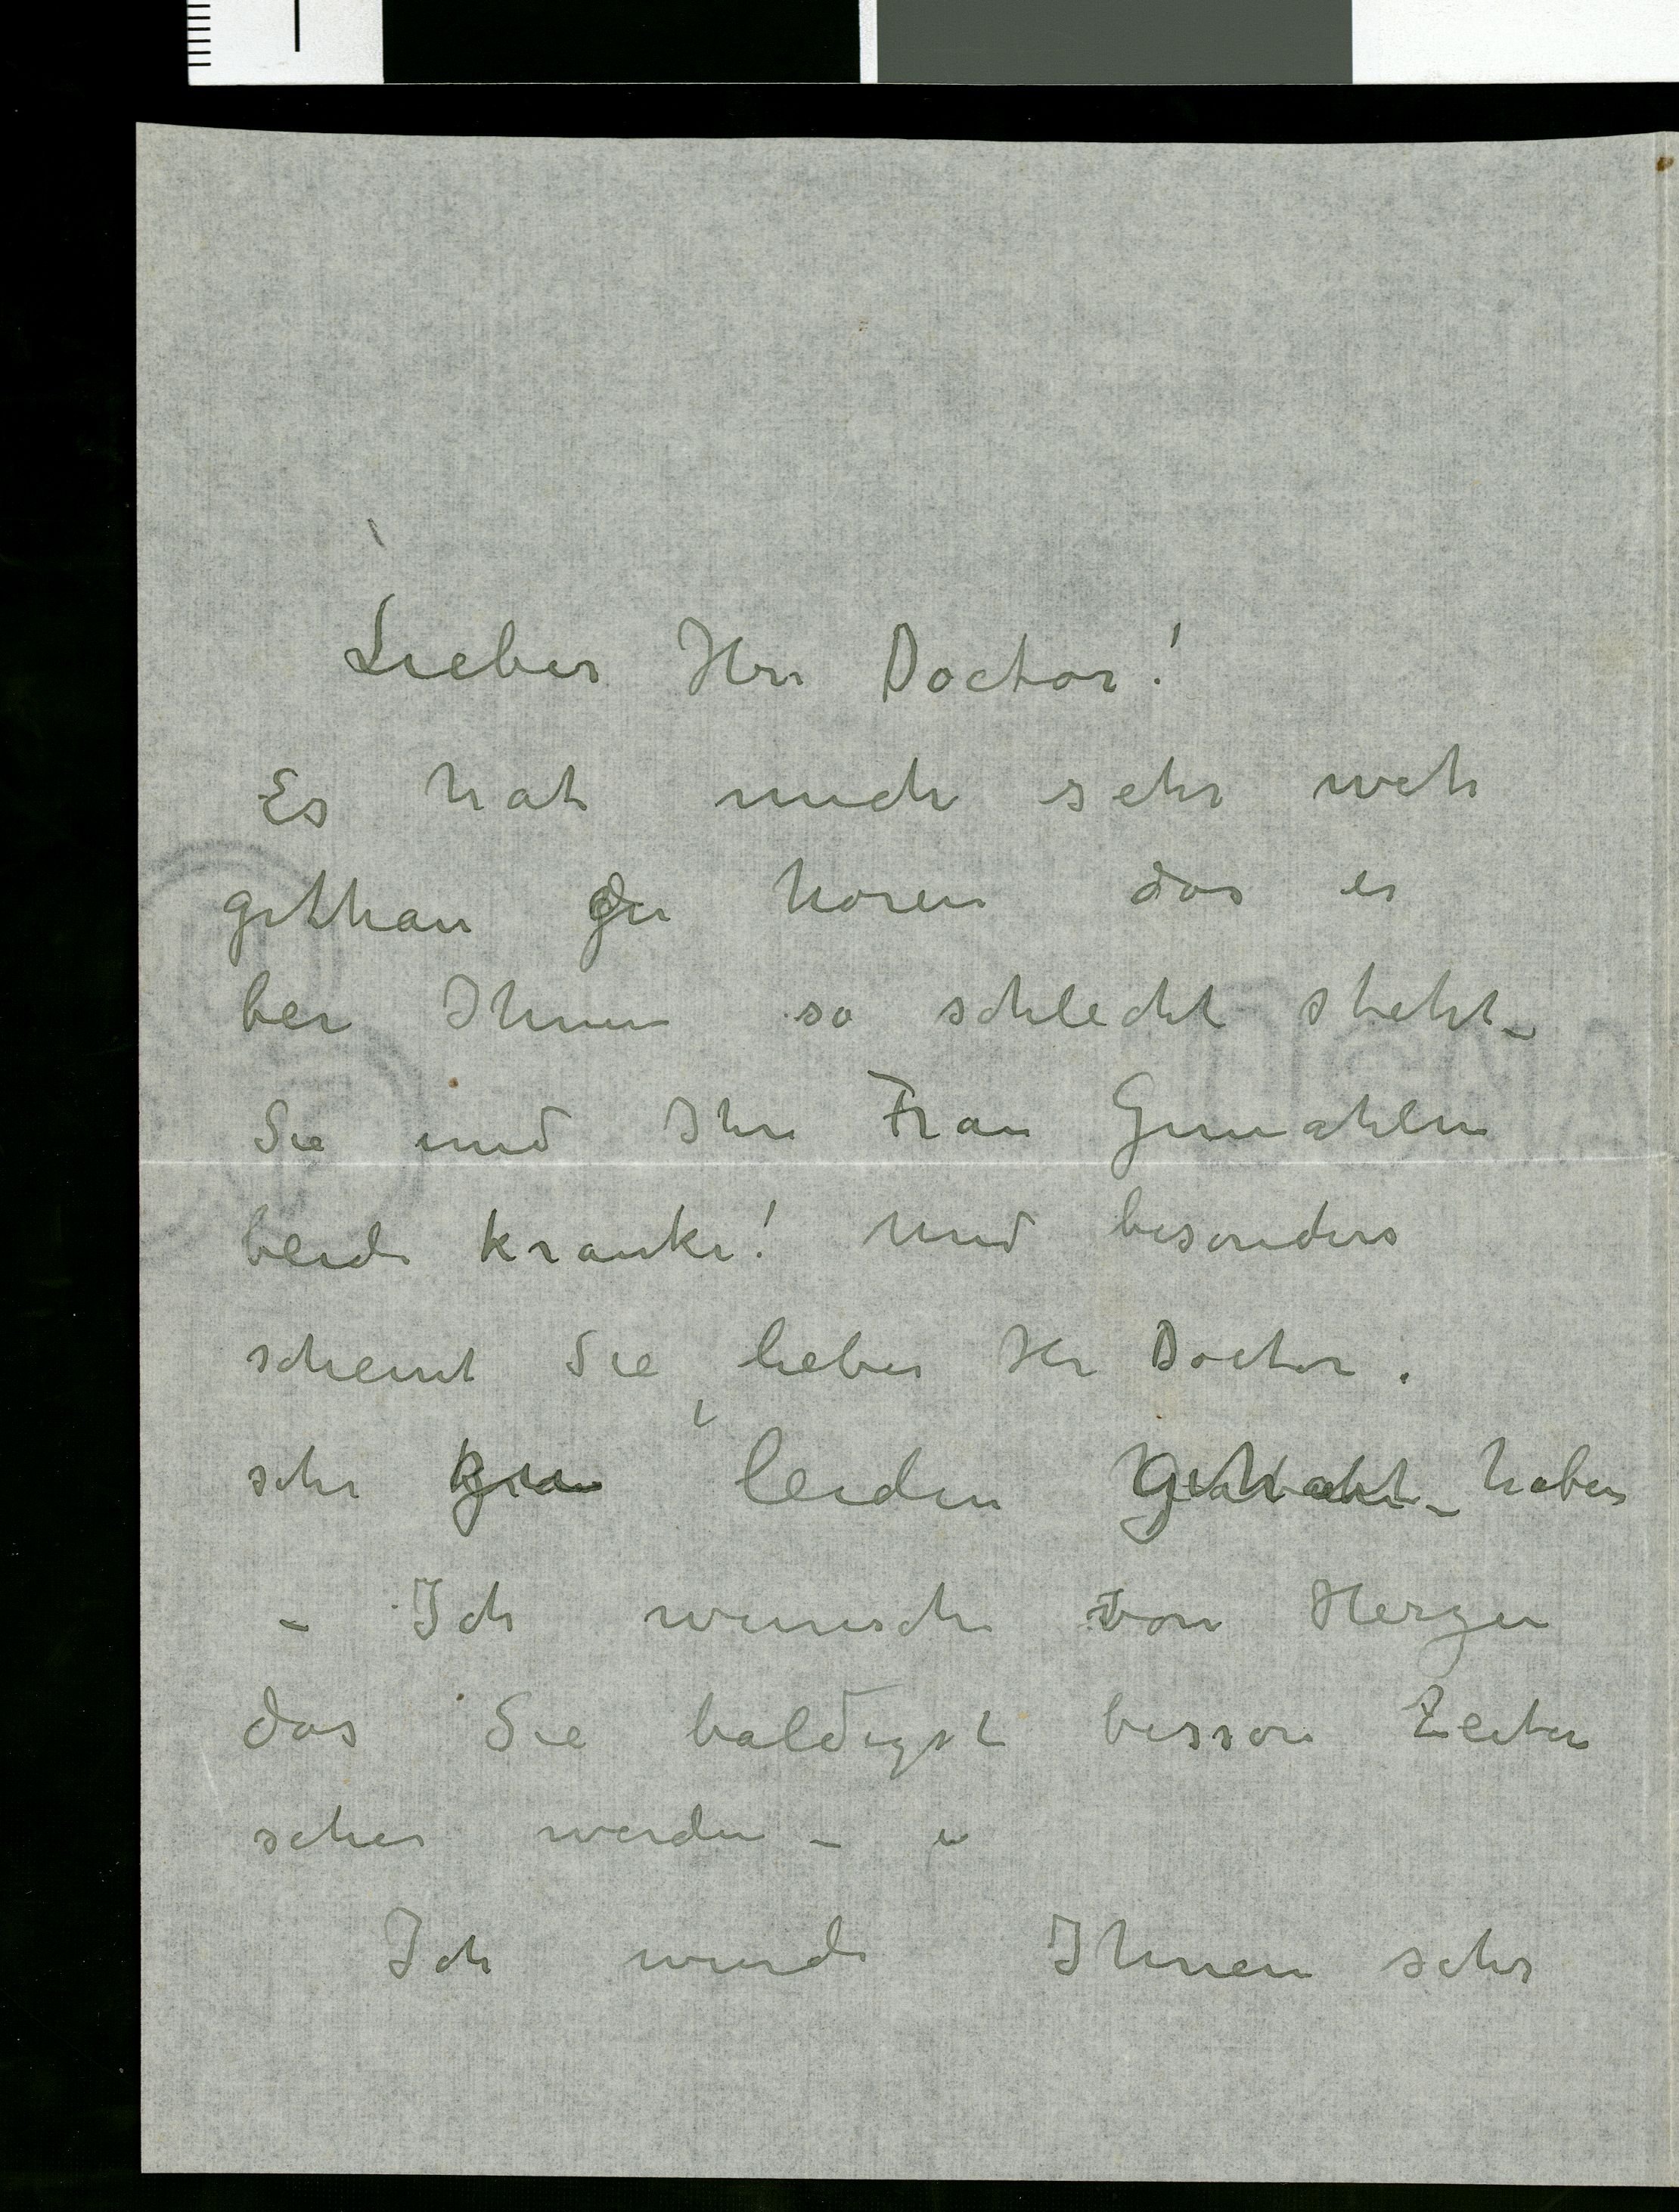 Lieber Herr Doctor!
Es hat mich sehr weh
gethan zu horen das es
bei Ihnen so schlecht steht_
Sie und Ihre Frau Gemahlin
beide kranke! Und besonders
scheint Sie, lieber Hr Doctor.
sehr leiden gehabt_ haben
– Ich wunsche von Herzen
das Sie baldigst bessere Zeiten
sehen werden –
Ich wurde Ihnen sehr